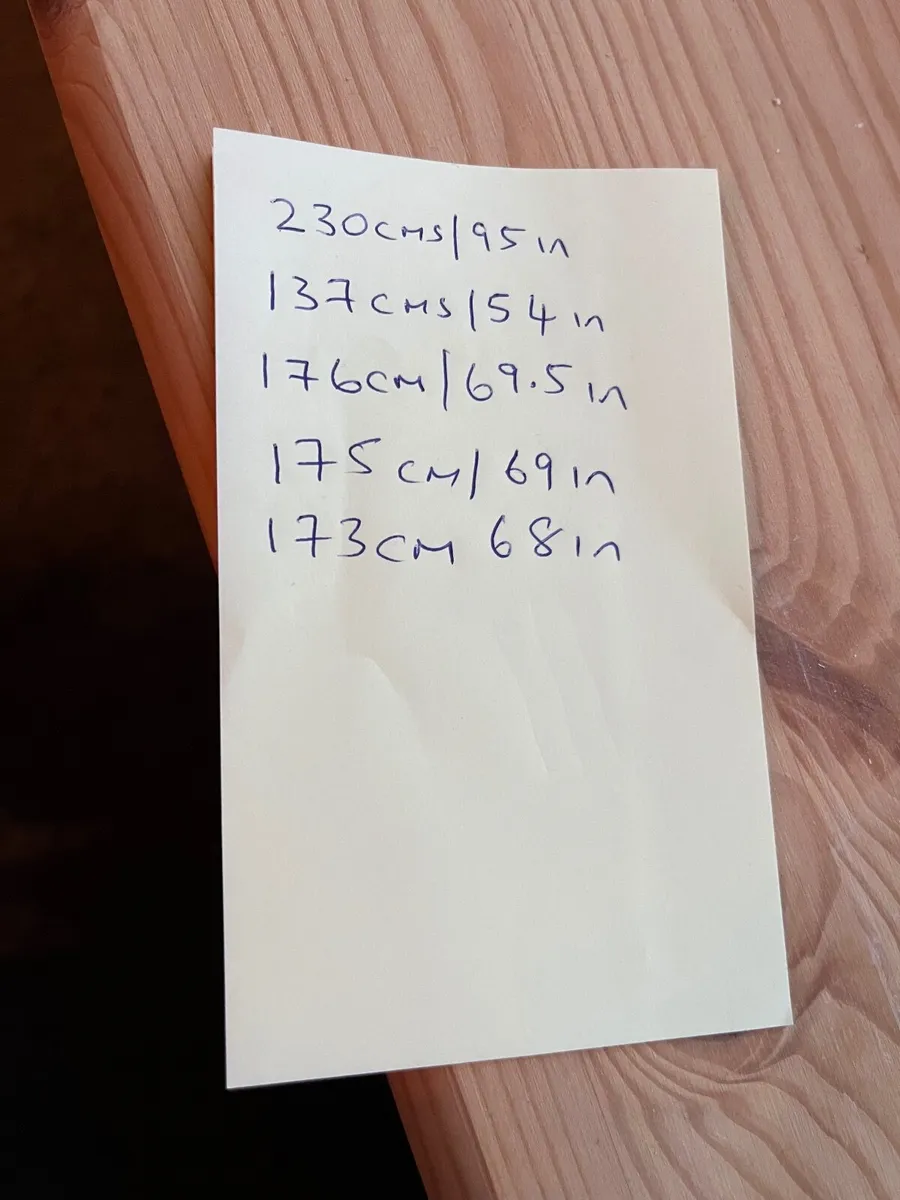 230cms/95in
137cms/54in
176cm/69.5in
175cm/69in
173cm 68in